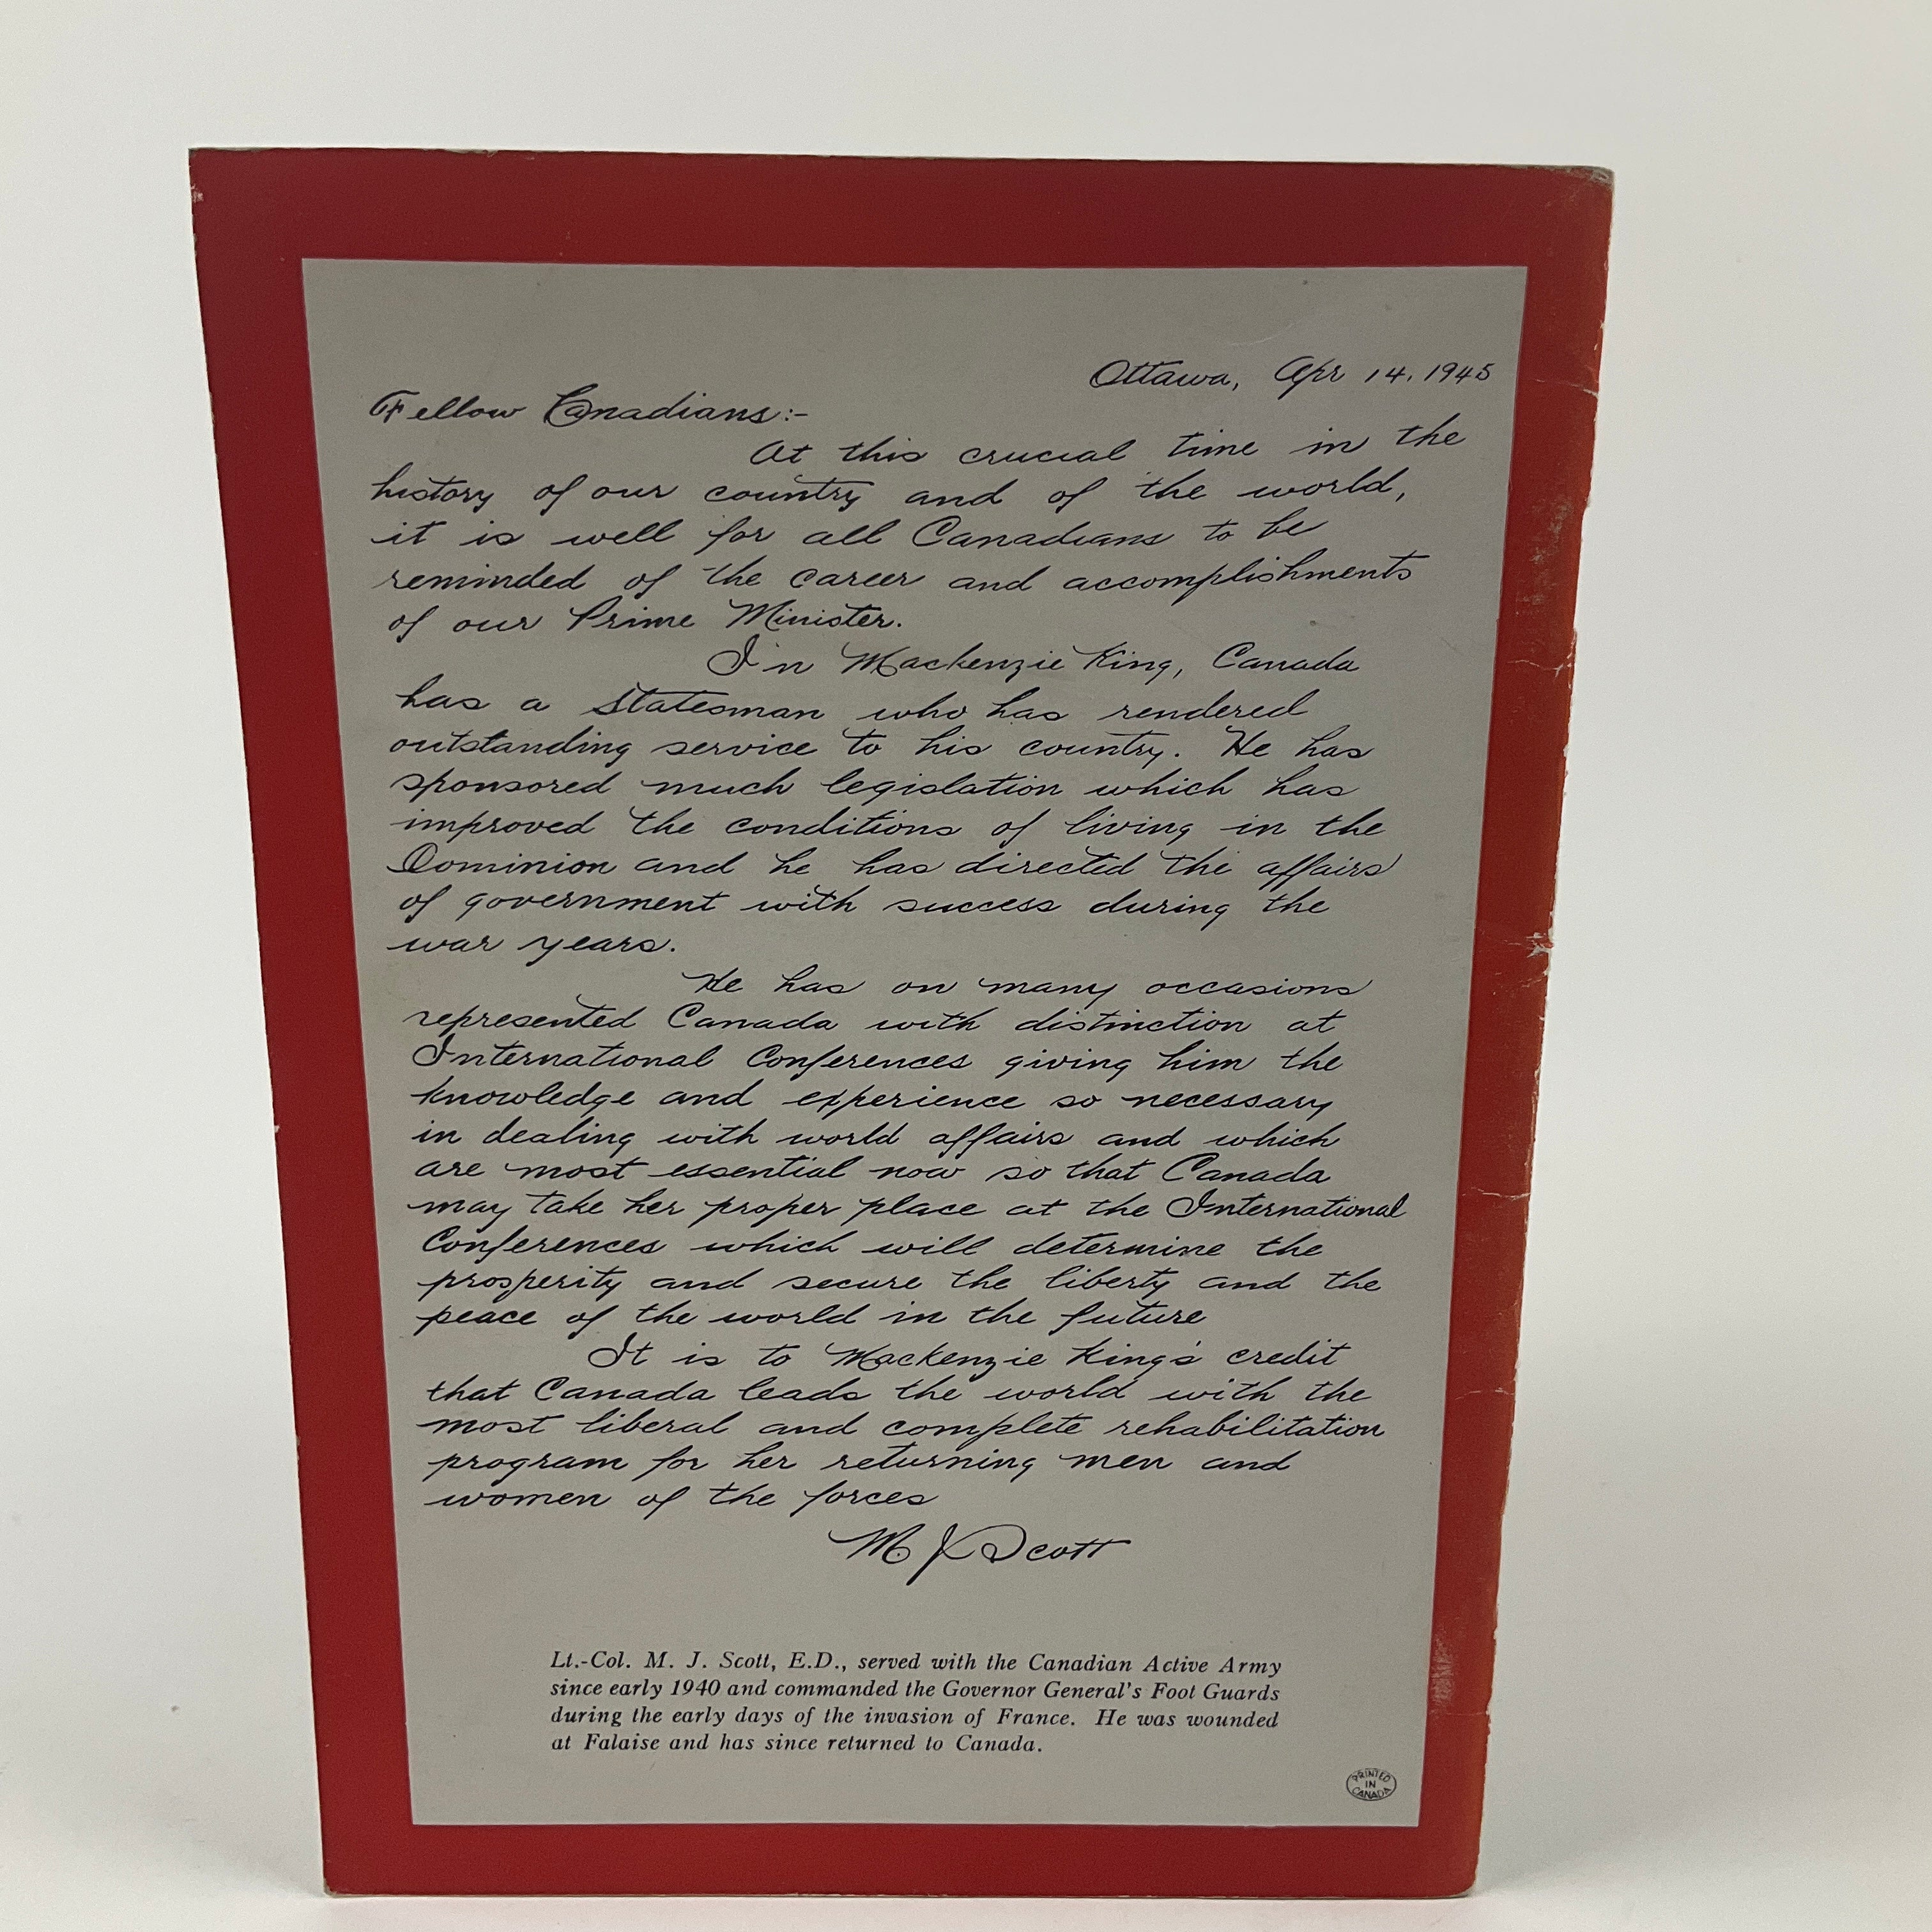 Ottawa, Apr 14, 1945
Fellow Canadians:-
At this crucial time in the
history of our country and of the world,
it is well for all Canadians to be
reminded of the career and accomplishments
of our Prime Minister.
In Mackenzie King, Canada
has a statesman who has rendered
outstanding service to his country. He has
sponsored much legislation which has
improved the conditions of living in the
Dominion and he has directed the affairs
of government with success during the
war years.
He has on many occasions
represented Canada with distinction at
International Conferences giving him the
knowledge and experience so necessary
in dealing with world affairs and which
are most essential now so that Canada
may take her proper place at the International
Conferences which will determine the
prosperity and secure the liberty and the
peace of the world in the future
It is to Mackenzie King's credit
that Canada leads the world with the
most liberal and complete rehabilitation
program for her returning men and
women of the forces
M J Scott
Lt.-Col. M. J. Scott, E.D., served with the Canadian Active Army
since early 1940 and commanded the Governor General's Foot Guards
during the early days of the invasion of France. He was wounded
at Falaise and has since returned to Canada.
PRINTED
IN
CANADA